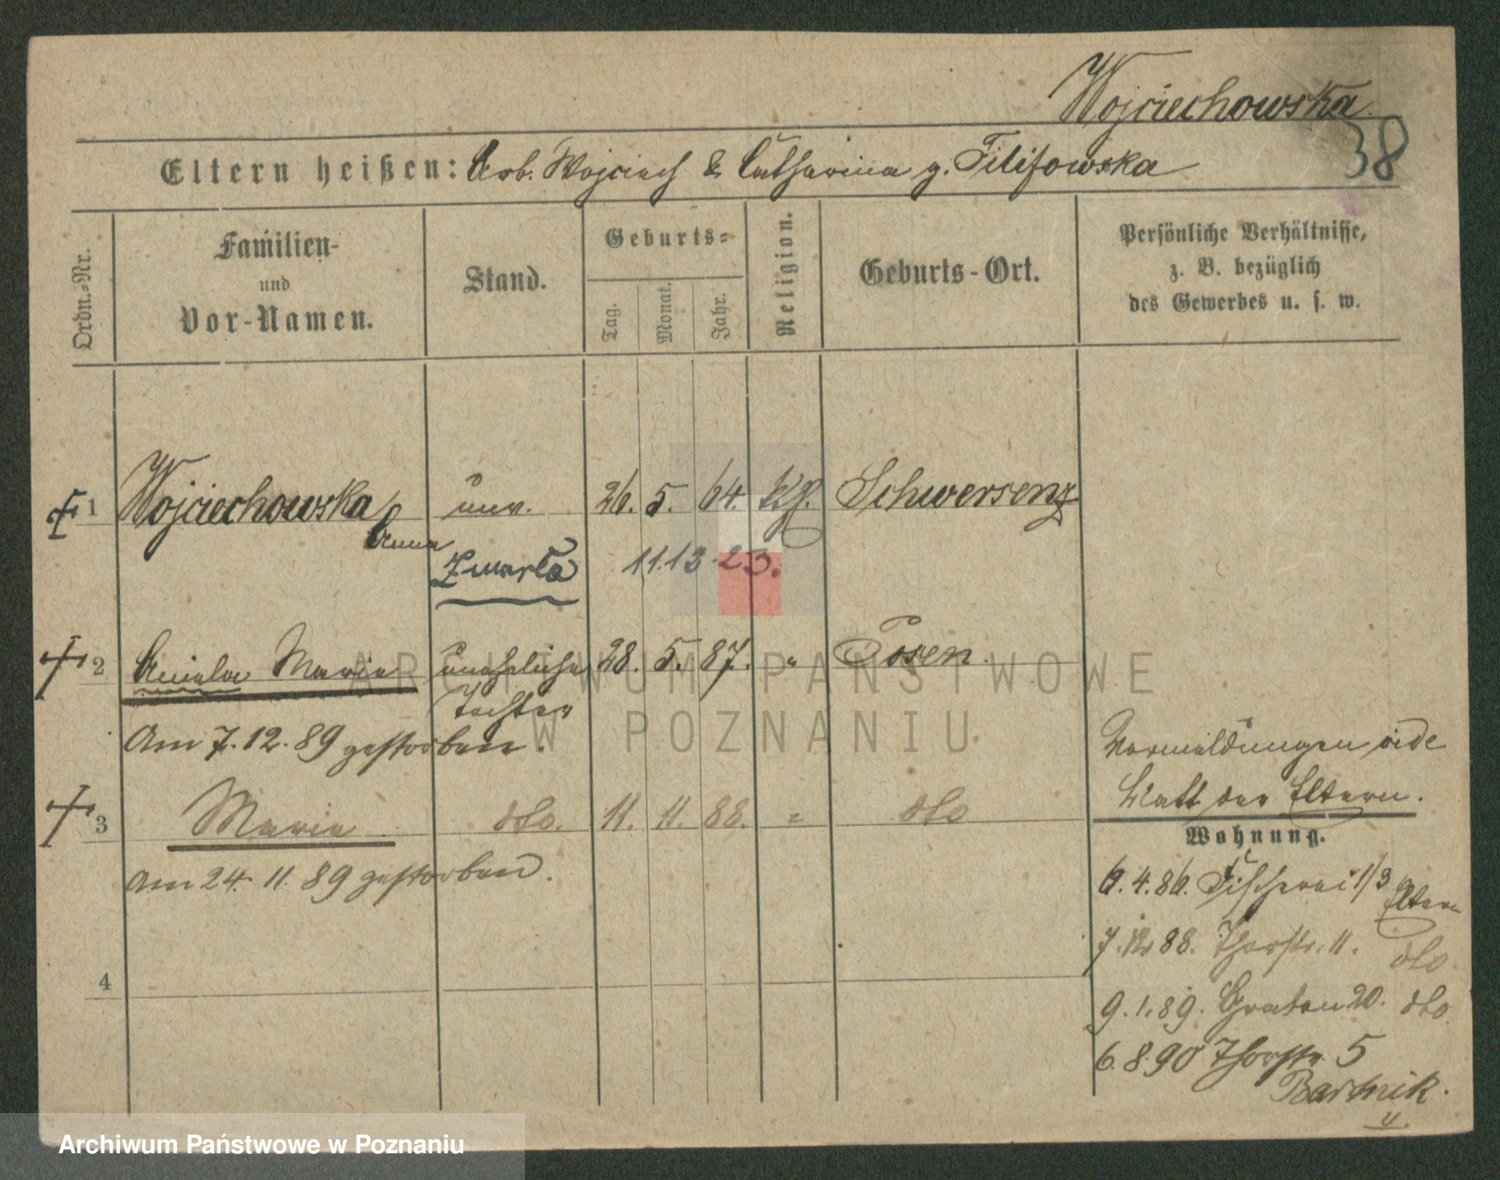 Wojciechowska
38
Eltern heißen: Arb. Wojciech & Catharina g. Filipowska
Ordn.-Nr.
Familien-
und
Vor-Namen.
Stand.
Geburts-
Tag.
Monat.
Jahr.
Religion.
Geburts-Ort.
Persönliche Verhältnisse,
z. B. bezüglich
des Gewerbes u. s. w.
1 Wojciechowska unv. 26. 5. 64. Schwersenz
Anna
Zmarła 11.12.23.
2 Aniela Marie uneheliche 28. 5. 87. " Posen
Tochter
Am 7.12.89 gestorben.
3 Marie dto. 11. 11. 88. " dto
Am 24. 11. 89 gestorben.
4
Vormeldungen vide
Blatt der Eltern.
Wohnung.
6.4.86. Fischerei 1/3 Eltern
7. 12 88. Thorstr. 11. dto
9.1.89. Graben 20. dto
6.8.90 Thorstr. 5
Bartnik.
ARCHIWUM PAŃSTWOWE
W POZNANIU
Archiwum Państwowe w Poznaniu